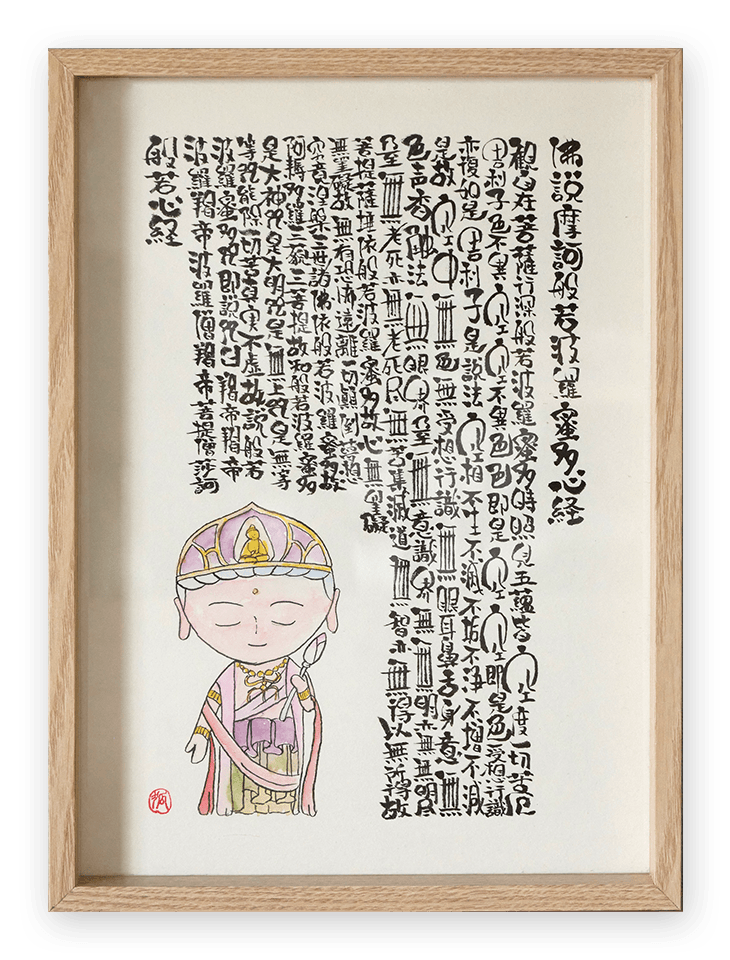 佛説摩訶般若波羅蜜多心経
観自在菩薩行深般若波羅蜜多時照見五蘊皆空度一切苦厄
舎利子色不異空空不異色色即是空空即是色受想行識
亦復如是舎利子是諸法空相不生不滅不垢不浄不増不減
是故空中無色無受想行識無眼耳鼻舌身意無
色声香味触法無眼界乃至無意識界無無明亦無無明尽
乃至無老死亦無老死尽無苦集滅道無智亦無得以無所得故
菩提薩埵依般若波羅蜜多故心無罣礙
無罣礙故無有恐怖遠離一切顛倒夢想
究竟涅槃三世諸佛依般若波羅蜜多故
阿耨多羅三藐三菩提故知般若波羅蜜多
是大神呪是大明呪是無上呪是無等
等呪能除一切苦真実不虚故説般若
波羅蜜多呪即説呪曰羯帝羯帝
波羅羯帝波羅僧羯帝菩提僧莎訶
般若心経